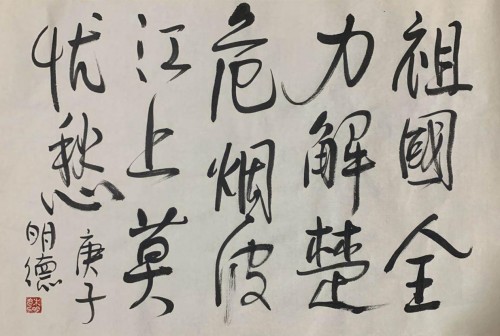 祖國全
力解楚
危烟波
江上莫
忧愁
庚子
明德